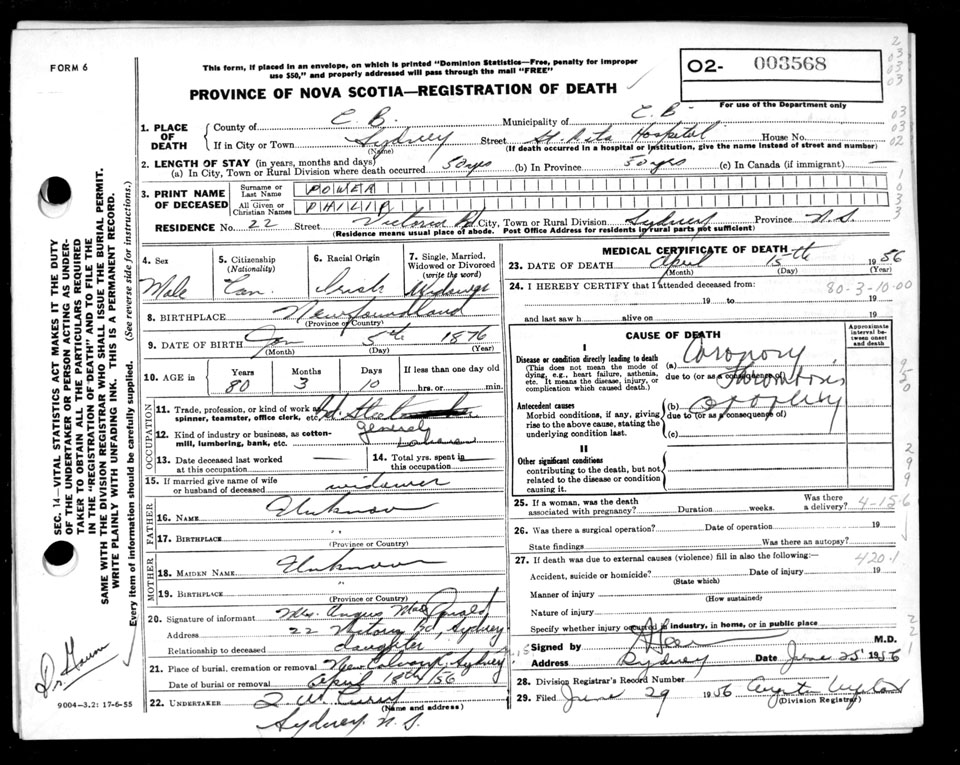 FORM 6
This form, if placed in an envelope, on which is printed "Dominion Statistics—Free, penalty for improper
use $50," and properly addressed will pass through the mail "FREE"
O2- 003568
For use of the Department only
PROVINCE OF NOVA SCOTIA—REGISTRATION OF DEATH
1. PLACE OF DEATH
County of C. B. Municipality of C. B.
If in City or Town Sydney Street St. Rita Hospital House No.
(Name) (If death occurred in a hospital or institution, give the name instead of street and number)
2. LENGTH OF STAY (in years, months and days)
(a) In City, Town or Rural Division where death occurred 50 yrs (b) In Province 50 yrs (c) In Canada (if immigrant) —
3. PRINT NAME OF DECEASED
Surname or Last Name POWER
All Given or Christian Names PHILIP
RESIDENCE No. 22 Street Victoria Rd City, Town or Rural Division Sydney Province N.S.
(Residence means usual place of abode. Post Office Address for residents in rural parts not sufficient)
4. Sex Male
5. Citizenship (Nationality) Can.
6. Racial Origin Irish
7. Single, Married, Widowed or Divorced (write the word)
8. BIRTHPLACE Newfoundland
(Province or Country)
9. DATE OF BIRTH Jan 5th 1876
(Month) (Day) (Year)
10. AGE in Years 80 Months 3 Days 10 If less than one day old hrs. or min.
OCCUPATION
11. Trade, profession, or kind of work as spinner, teamster, office clerk, etc.
12. Kind of industry or business, as cotton-mill, lumbering, bank, etc. general
13. Date deceased last worked at this occupation —
14. Total yrs. spent in this occupation —
15. If married give name of wife or husband of deceased widower
FATHER
16. NAME Unknown
17. BIRTHPLACE "
(Province or Country)
MOTHER
18. MAIDEN NAME Unknown
19. BIRTHPLACE "
(Province or Country)
20. Signature of informant Mrs. Angus MacDonald
Address 22 Victoria Rd, Sydney
Relationship to deceased daughter
21. Place of burial, cremation or removal New Calvary, Sydney
Date of burial or removal April 18th/56
22. UNDERTAKER
(Name and address)
Sydney N.S.
MEDICAL CERTIFICATE OF DEATH
23. DATE OF DEATH April 15th 1956
(Month) (Day) (Year)
24. I HEREBY CERTIFY that I attended deceased from:
80-3-10-00
19 to 19
and last saw h alive on 19
CAUSE OF DEATH
Approximate interval between onset and death
I
Disease or condition directly leading to death
(This does not mean the mode of dying, e.g., heart failure, asthenia, etc. It means the disease, injury, or complication which caused death.)
(a) Coronary Thrombosis
due to (or as a consequence of)
Antecedent causes
Morbid conditions, if any, giving rise to the above cause, stating the underlying condition last.
(b)
due to (or as a consequence of)
(c)
II
Other significant conditions
contributing to the death, but not related to the disease or condition causing it.
25. If a woman, was the death associated with pregnancy? Duration weeks. Was there a delivery?
4-15-6
26. Was there a surgical operation? Date of operation 19
State findings Was there an autopsy?
27. If death was due to external causes (violence) fill in also the following:
420.1
Accident, suicide or homicide? Date of injury 19
(State which)
Manner of injury
(How sustained)
Nature of injury
Specify whether injury occurred in industry, in home, or in public place
Signed by M.D.
Address Sydney Date June 25 1956
28. Division Registrar's Record Number
29. Filed June 29 1956
(Division Registrar)
SEC. 14—VITAL STATISTICS ACT MAKES IT THE DUTY
OF THE UNDERTAKER OR PERSON ACTING AS UNDER-
TAKER TO OBTAIN ALL THE PARTICULARS REQUIRED
IN THE "REGISTRATION OF DEATH" AND TO FILE THE
SAME WITH THE DIVISION REGISTRAR WHO SHALL ISSUE THE BURIAL PERMIT.
WRITE PLAINLY WITH UNFADING INK. THIS IS A PERMANENT RECORD.
Every item of information should be carefully supplied. (See reverse side for instructions.)
9004—3.2: 17-6-55